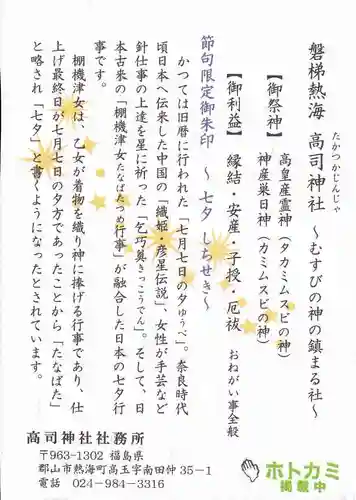 磐梯熱海 高司神社 ～むすびの神の鎮まる社～
たかつかじんじゃ
【御祭神】 高皇産霊神（タカミムスビの神）
神産巣日神（カミムスビの神）
【御利益】 縁結・安産・子授・厄祓 おねがい事全般
節句限定御朱印 ～ 七夕 しちせき～
かつては旧暦に行われた「七月七日の夕ゅうべ」。奈良時代
頃日本へ伝来した中国の「織姫・彦星伝説」、女性が手芸など
針仕事の上達を星に祈った「乞巧奠きっこうでん」。そして、日
本古来の「棚機津女たなばたつめ行事」が融合した日本の七夕行
事です。
棚機津女は、乙女が着物を織り神に捧げる行事であり、仕
上げ最終日が七月七日の夕方であったことから「たなばた」
と略され「七夕」と書くようになったとされています。
高司神社社務所
〒963-1302 福島県
郡山市熱海町高玉字南田仲35－1
電話 024-984-3316
ホトカミ
掲載中